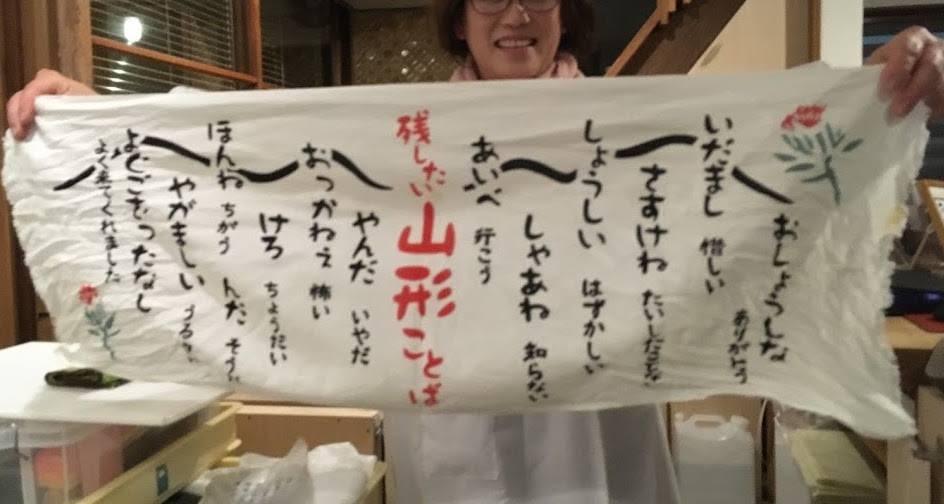 おしょうしな ありがとう
いだまし 惜しい
さすけね たいしたことな
しょうしい はずかしい
しゃあね 知らない
あいべ 行こう
残したい山形ことば
やんだ いやだ
おっかねぇ 怖い
けろ ちょうだい
ほんね ちがう
んだ そう
やがましい
よぐござったなし
よく来てくれました